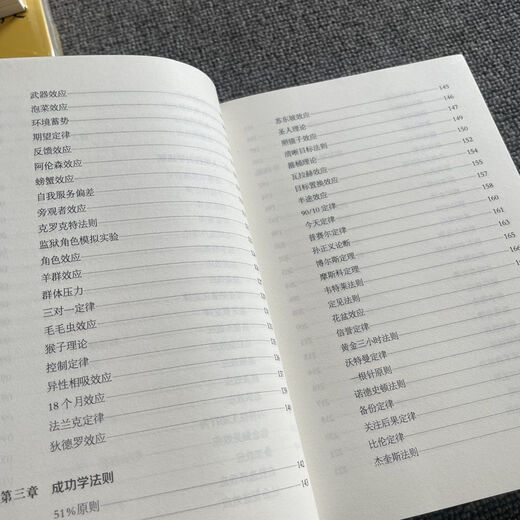 武器效应
泡菜效应
环境蓄势
期望定律
反馈效应
阿伦森效应
螃蟹效应
自我服务偏差
旁观者效应
克罗克特法则
监狱角色模拟实验
角色效应
羊群效应
群体压力
三对一定律
毛毛虫效应
猴子理论
控制定律
异性相吸效应
18个月效应
法兰克定律
狄德罗效应
第三章 成功学法则 142
51%原则 143
145
苏东坡效应 146
圣人理论 147
照镜子效应 149
清晰目标法则 150
推桶理论 152
瓦拉赫效应 154
目标置换效应 155
半途效应 157
90/10定律 158
今天定律 160
普赛尔定律 161
孙正义论断 163
博尔斯定理 165
摩斯科定理 166
韦特莱法则
定见法则
花盆效应
信誉定律
黄金三小时法则
沃特曼定律
一根针原则
诺德史顿法则
备份定律
关注后果定律
比伦定律
杰奎斯法则